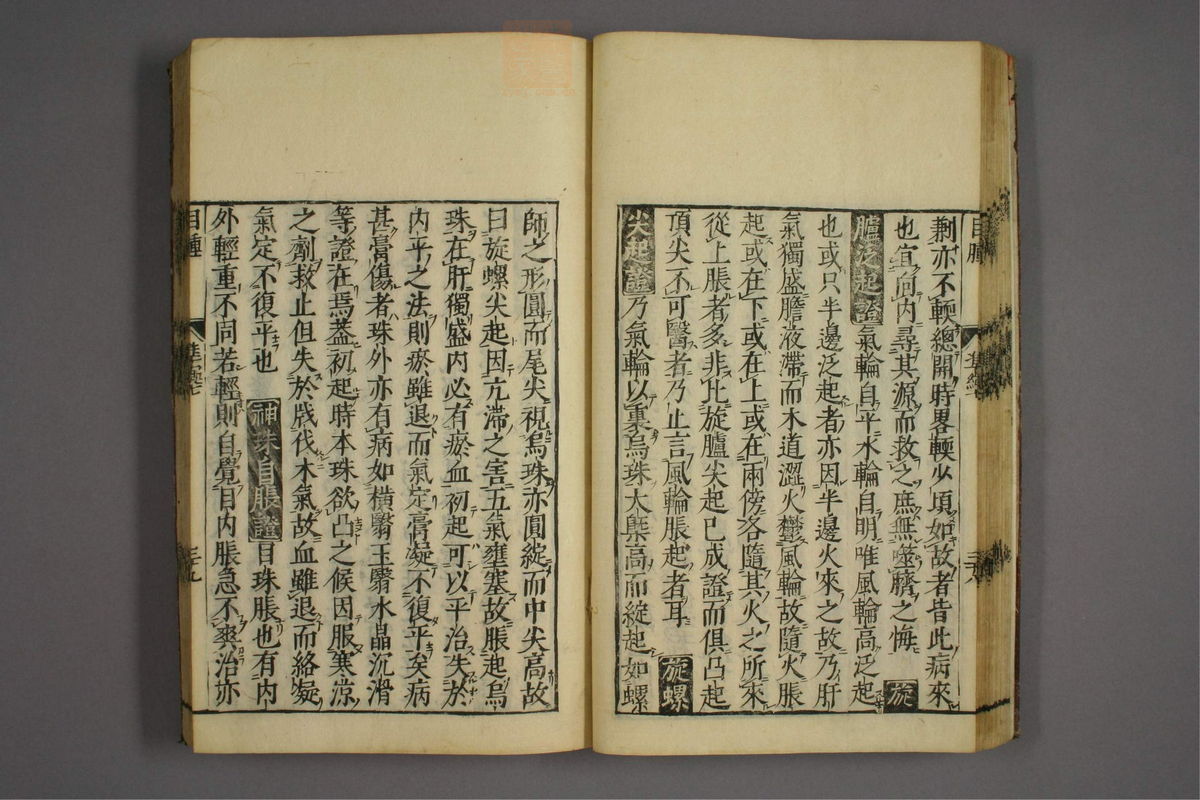 剰亦不輭總開時畧輭少頃如故者皆此病來
也宜向内尋其源而救之庶無噬臍之悔 旋
臚泛起證 氣輪自平水輪自明唯風輪高泛起
也或只半邊泛起者亦因半邊火來之故乃肝
氣獨盛膽液滯而木道澀火鬱風輪故隨火脹
起或在下或在上或在兩傍各隨其火之所來
從上脹者多非比旋臚尖起已成證而俱凸起
頂尖不可醫者乃止言風輪脹起者耳 旋螺
尖起證 乃氣輪以裏烏珠大槩高而綻起如螺
師之形圓而尾尖視烏珠亦圓綻而中尖高故
曰旋螺尖起因亢滯之害五氣壅塞故脹起烏
珠在肝獨盛内必有瘀血初起可以平治失於
内平之法則瘀雖退而氣定膏凝不復平矣病
甚膏傷者珠外亦有病如横翳玉翳水晶沉滑
等證在焉蓋初起時本珠欲凸之候因服寒涼
之劑救止但失於戕伐木氣故血雖退而絡凝
氣定不復平也 神珠自脹證 目珠脹也有内
外輕重不同若輕則自覺目内脹急不爽治亦